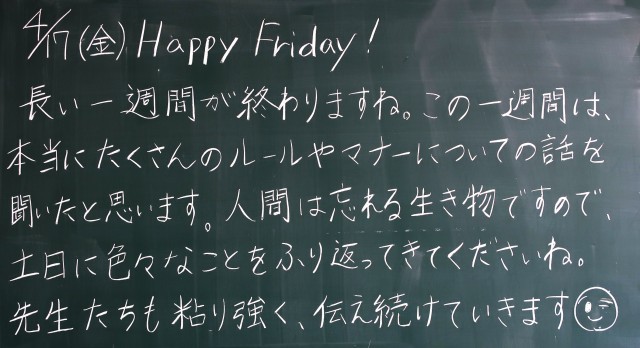 4/17(金) Happy Friday!
長い一週間が終わりますね。この一週間は、
本当にたくさんのルールやマナーについての話を
聞いたと思います。人間は忘れる生き物ですので、
土日に色々なことをふり返ってきてくださいね。
先生たちも粘り強く、伝え続けていきます